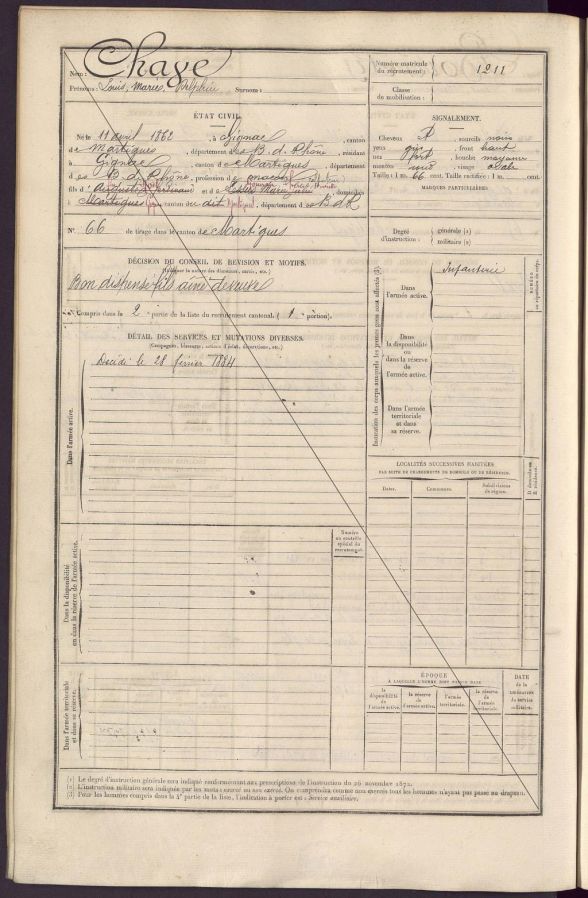 Nom : Chave
Prénoms : Louis, Marius, Delphin Surnom :
Numéro matricule
du recrutement : 1211
Classe
de mobilisation :
ÉTAT CIVIL.
Né le 11 avril 1862, à Gignac, canton
de Martigues, département des B. d. Rhône, résidant
à Gignac, canton de Martigues, département
des B. d. Rhône, profession de maçon
fils d'Auguste et de domiciliés
à Martigues, canton du dit, département des B d R
N° 66 de tirage dans le canton de Martigues
SIGNALEMENT.
Cheveux sourcils noirs
yeux gris, front haut
nez fort, bouche moyenne
menton rond, visage ovale
Taille : 1 m. 66 cent. Taille rectifiée : 1 m. cent.
MARQUES PARTICULIÈRES :
Degré
d'instruction :
générale (1)
militaire (2)
DÉCISION DU CONSEIL DE REVISION ET MOTIFS.
Bon dispensé fils aîné de veuve
Compris dans la 2e partie de la liste du recrutement cantonal. (1e portion).
DÉTAIL DES SERVICES ET MUTATIONS DIVERSES.
(Campagnes, blessures, actions d'éclat, décorations, etc.)
Dans l'armée active.
Décédé le 28 février 1884
Dans la disponibilité
ou dans la réserve de l'armée active.
Numéro
au contrôle
spécial du
recrutement.
Dans l'armée territoriale
et dans sa réserve.
Indication des corps auxquels les jeunes gens sont affectés (3).
Dans
l'armée active.
Infanterie
Dans
la disponibilité
ou
dans la réserve
de
l'armée active.
Dans l'armée
territoriale
et dans
sa réserve.
LOCALITÉS SUCCESSIVES HABITÉES
PAR SUITE DE CHANGEMENTS DE DOMICILE OU DE RÉSIDENCE.
Dates.
Communes.
Subdivisions
de région.
D domicile ou
R résidence.
ÉPOQUE
À LAQUELLE L'HOMME DOIT PASSER DANS
la
disponibilité
de
l'armée active.
la réserve
de
l'armée active.
l'armée
territoriale.
la réserve
de
l'armée
territoriale.
DATE
de la
LIBÉRATION
du service
militaire.
(1) Le degré d'instruction générale sera indiqué conformément aux prescriptions de l'instruction du 26 novembre 1872.
(2) L'instruction militaire sera indiquée par les mots : exercé ou non exercé. On comprendra comme non exercés tous les hommes n'ayant pas passé au drapeau.
(3) Pour les hommes compris dans la 4e partie de la liste, l'indication à porter est : Service auxiliaire.